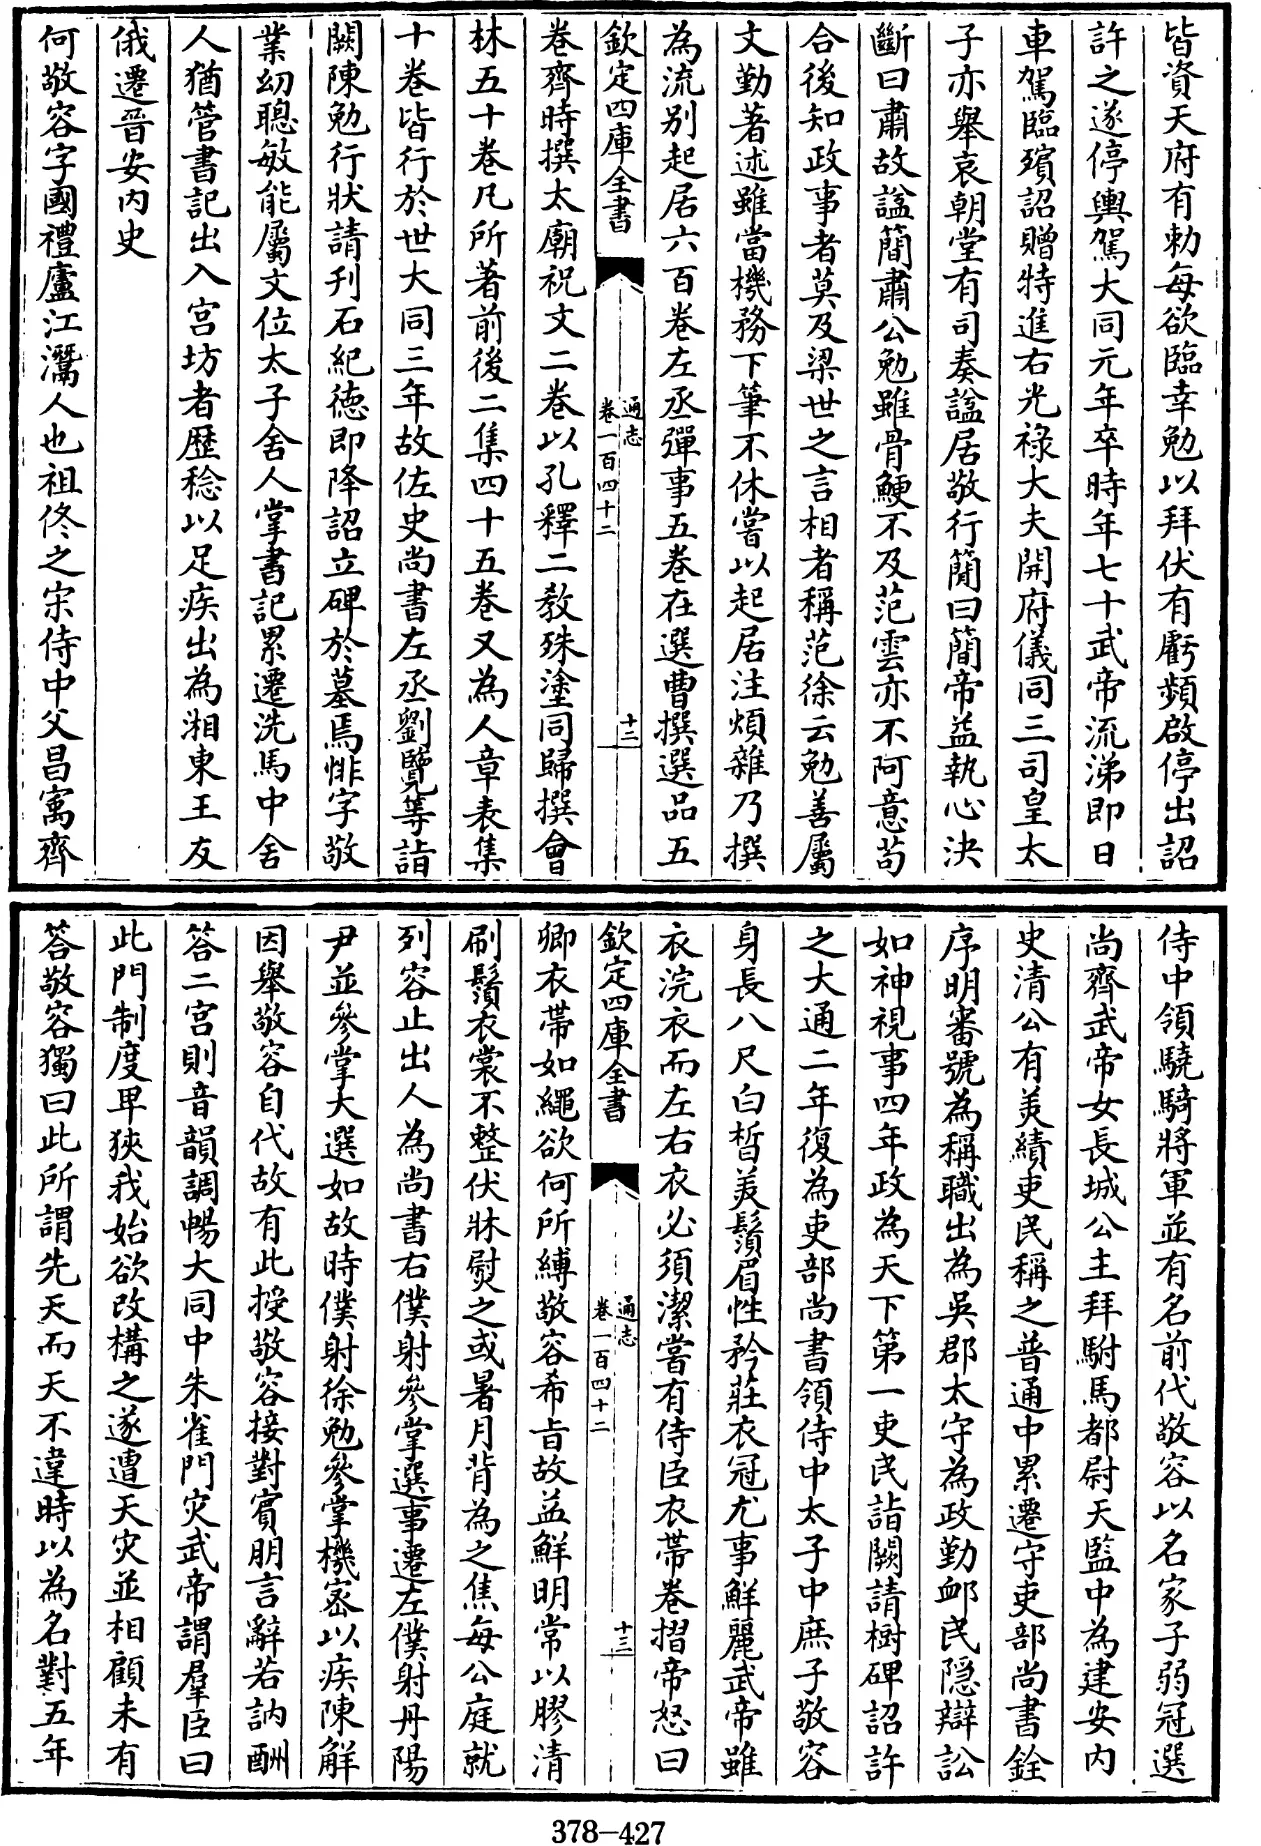 皆資天府有勅每欲臨幸勉以拜伏有虧頻啟停出詔
許之遂停輿駕大同元年卒時年七十武帝流涕即日
車駕臨殯詔贈特進右光祿大夫開府儀同三司皇太
子亦舉哀朝堂有司奏諡居敬行簡曰簡帝益執心決
斷曰肅故諡簡肅公勉雖骨鯁不及范雲亦不阿意苟
合後知政事者莫及梁世之言相者稱范徐云勉善屬
文勤著述雖當機務下筆不休嘗以起居注煩雜乃撰
為流别起居六百卷左丞彈事五卷在選曹撰選品五
欽定四庫全書
通志
卷一百四十二
十二
卷齊時撰太廟祝文二卷以孔釋二教殊塗同歸撰會
林五十卷凡所著前後二集四十五卷又為人章表集
十卷皆行於世大同三年故佐史尚書左丞劉覽等詣
闕陳勉行狀請刋石紀徳即降詔立碑於墓焉悱字敬
業幼聰敏能屬文位太子舍人掌書記累遷洗馬中舍
人猶管書記出入宮坊者歴稔以足疾出為湘東王友
俄遷晉安内史
何敬容字國禮廬江灊人也祖佟之宋侍中父昌㝢齊
侍中領驍騎將軍並有名前代敬容以名家子弱冠選
尚齊武帝女長城公主拜駙馬都尉天監中為建安内
史清公有美績吏民稱之普通中累遷守吏部尚書銓
序明審號為稱職出為吳郡太守為政勤衈民隠辯訟
如神視事四年政為天下第一吏民詣闕請樹碑詔許
之大通二年復為吏部尚書領侍中太子中庶子敬容
身長八尺白皙美鬚眉性矜莊衣冠尤事鮮麗武帝雖
衣浣衣而左右衣必須潔嘗有侍臣衣帶卷摺帝怒曰
欽定四庫全書
通志
卷一百四十二
十三
卿衣帶如繩欲何所縛敬容希旨故益鮮明常以膠清
刷鬚衣裳不整伏牀熨之或暑月背為之焦每公庭就
列容止出人為尚書右僕射參掌選事遷左僕射丹陽
尹並參掌大選如故時僕射徐勉參掌機密以疾陳解
因舉敬容自代故有此授敬容接對賓朋言辭若訥酬
答二宮則音韻調暢大同中朱雀門灾武帝謂羣臣曰
此門制度卑狹我始欲改構之遂遭天灾並相顧未有
答敬容獨曰此所謂先天而天不違時以為名對五年
378-427